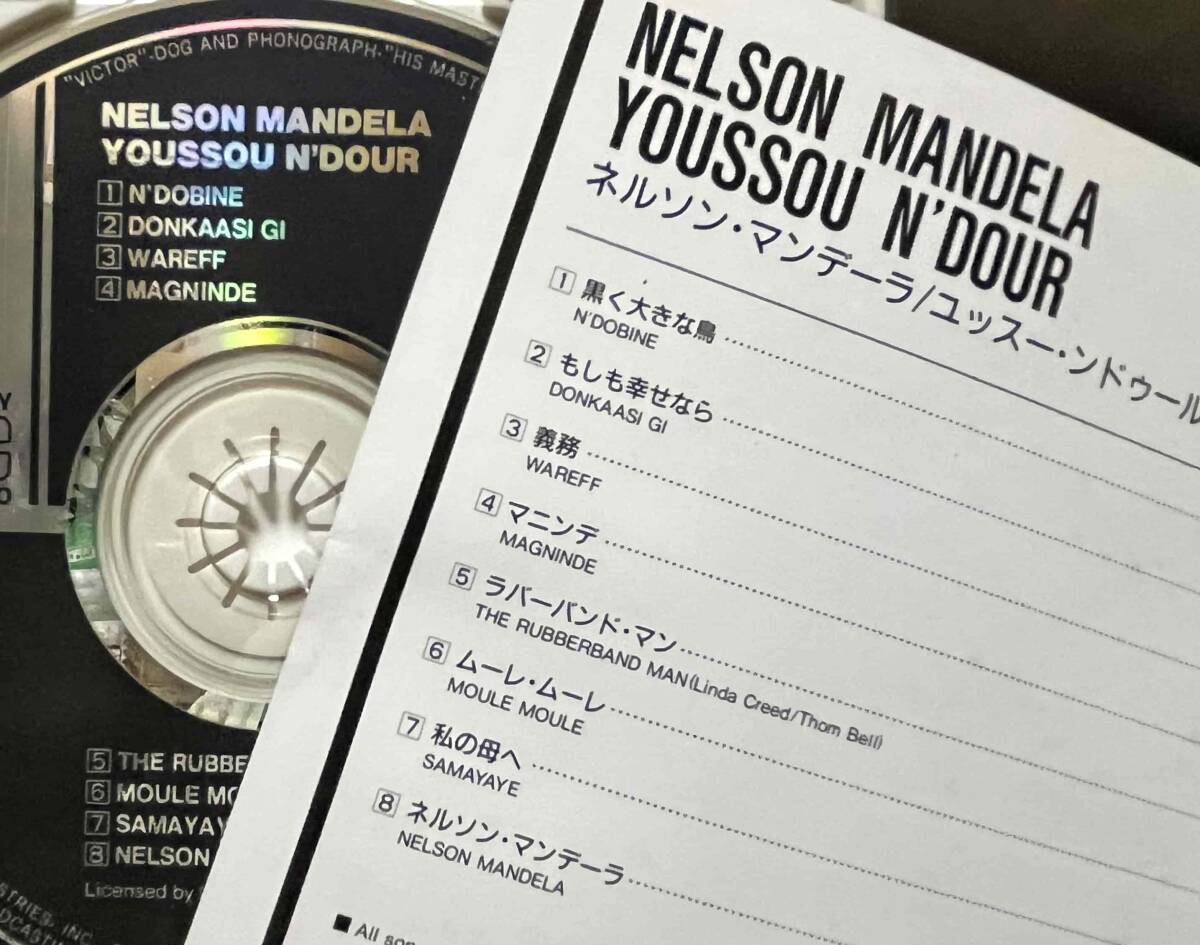 "VICTOR"-DOG AND PHONOGRAPH-"HIS
NELSON MANDELA
YOUSSOU N'DOUR
1 N'DOBINE
2 DONKAASI GI
3 WAREFF
4 MAGNINDE
5 THE
6 MOULE
7
8 NELSON
Licensed by
INC.
NELSON MANDELA
YOUSSOU N'DOUR
ネルソン・マンデーラ/ユッスー・ンドゥール
1 黒く大きな鳥
N'DOBINE
2 もしも幸せなら
DONKAASI GI
3 義務
WAREFF
4 マニンデ
MAGNINDE
5 ラバーバンド・マン
THE RUBBERBAND MAN(Linda Creed/Thom Bell)
6 ムーレ・ムーレ
MOULE MOULE
7 私の母へ
SAMAYAYE
8 ネルソン・マンデーラ
NELSON MANDELA
■ All